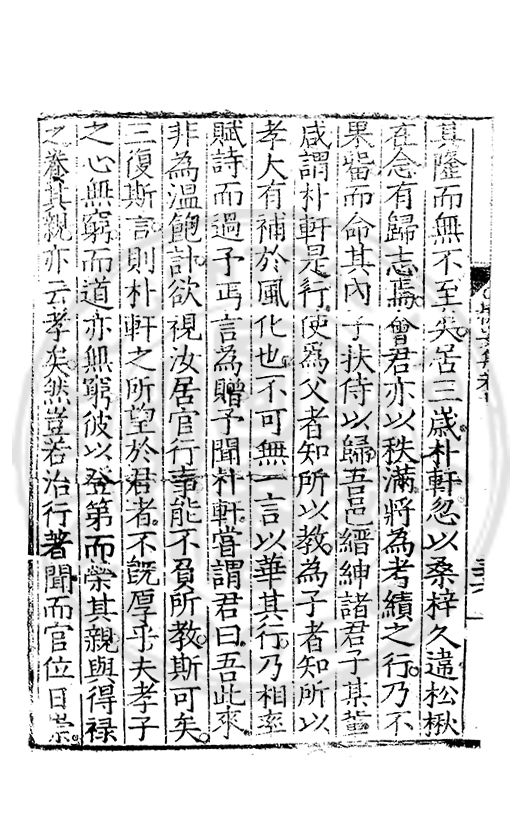 具隆而無不至矣居三歲朴軒忽以桑梓久違松楸
在念有歸志焉會君亦以秩滿將為考績之行乃不
果留而命其內子扶侍以歸吾邑縉紳諸君子其
咸謂朴軒是行使為父者知所以教為子者知所以
孝大有補於風化也不可無一言以華其行乃相率
賦詩而過予丐言為贈予聞朴軒嘗謂君曰吾此來
非為溫飽計欲視汝居官行事能不負所教斯可矣
三復斯言則朴軒之所望於君者不既厚乎夫孝子
之心無窮而道亦無窮彼以登第而榮其親與得祿
之養其親亦云孝矣然豈若治行著聞而官位日崇